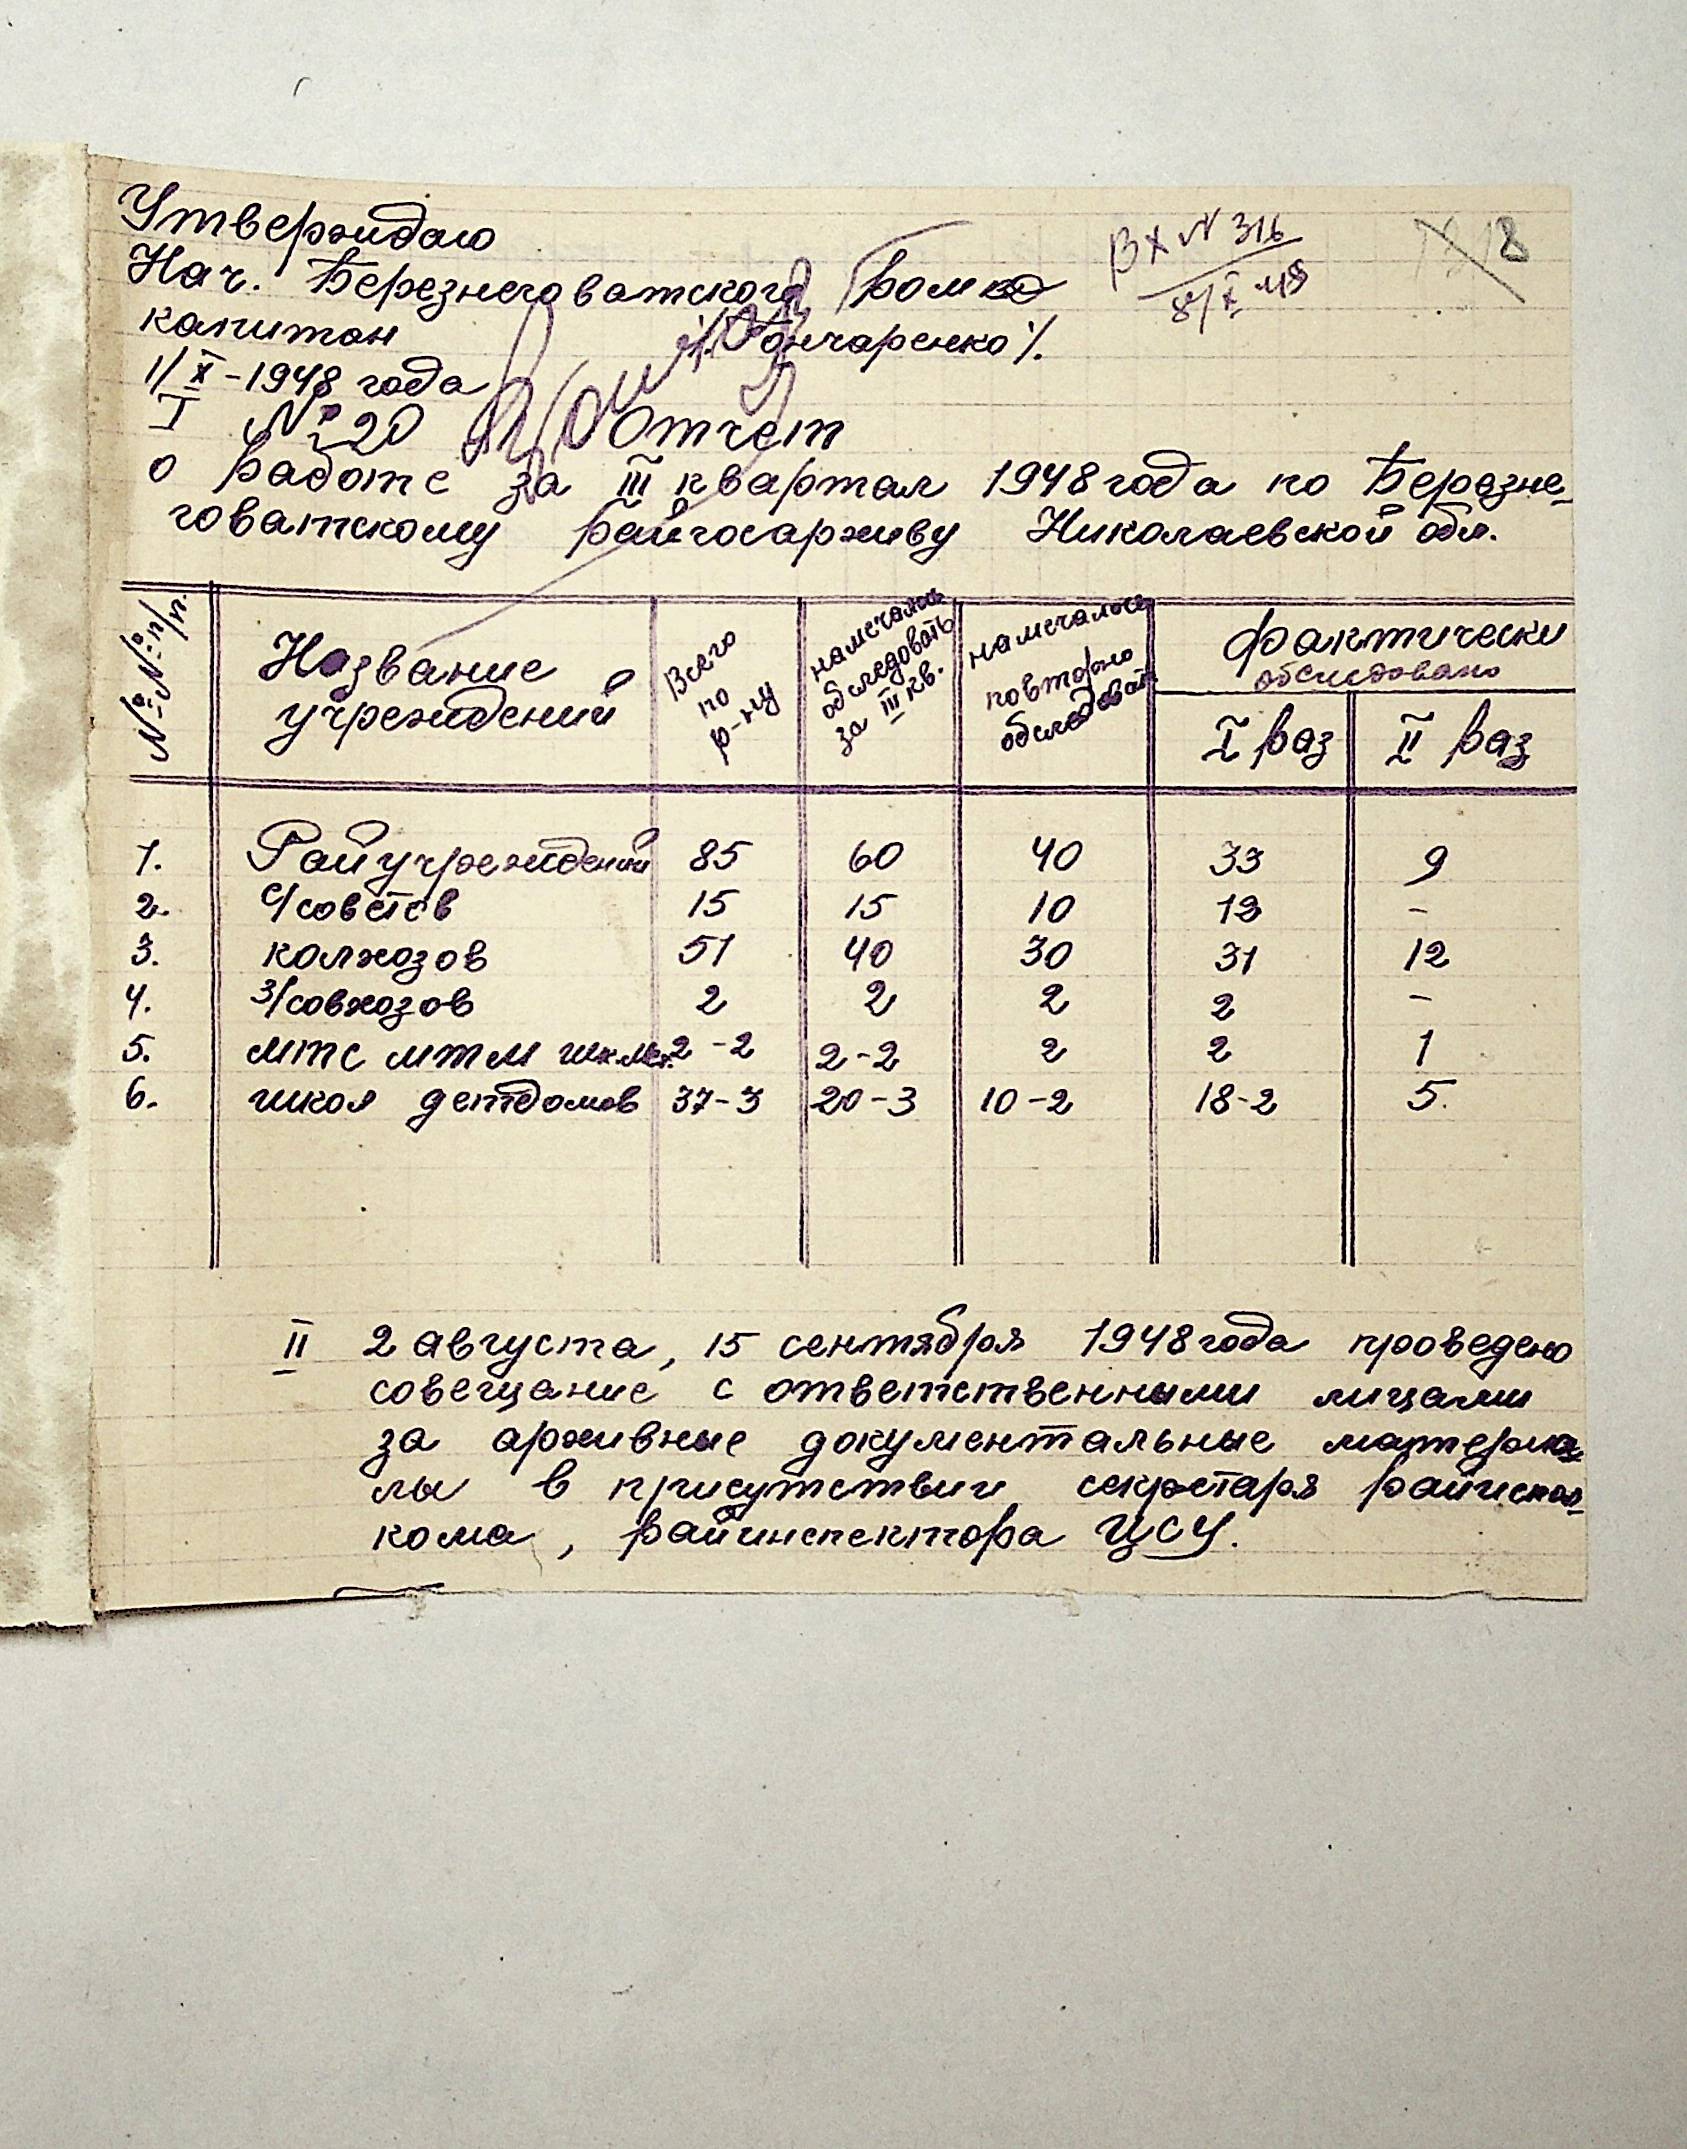 Утверждаю
Нач. Березнеговатского РОМВД
капитан /Гончаренко/.
1/X-1948 года
Вх N 316
8/X 48
8
I № 20 Отчет
о работе за III квартал 1948 года по Березне-
говатскому райгосархиву Николаевской обл.
№№ п/п. | Название учреждений | Всего по р-ну | намечалось обследовать за III кв. | намечалось повторно обследоват | фактически обследовано
I раз | II раз
1. Райучреждений 85 60 40 33 9
2. с/советов 15 15 10 13 -
3. колхозов 51 40 30 31 12
4. з/совхозов 2 2 2 2 -
5. МТС МТМ 2-2 2-2 2 2 1
6. школ детдомов 37-3 20-3 10-2 18-2 5.
II 2 августа, 15 сентября 1948 года проведено
совещание с ответственными лицами
за архивные документальные материа-
лы в присутствии секретаря райиспол-
кома, райинспектора ЦСУ.